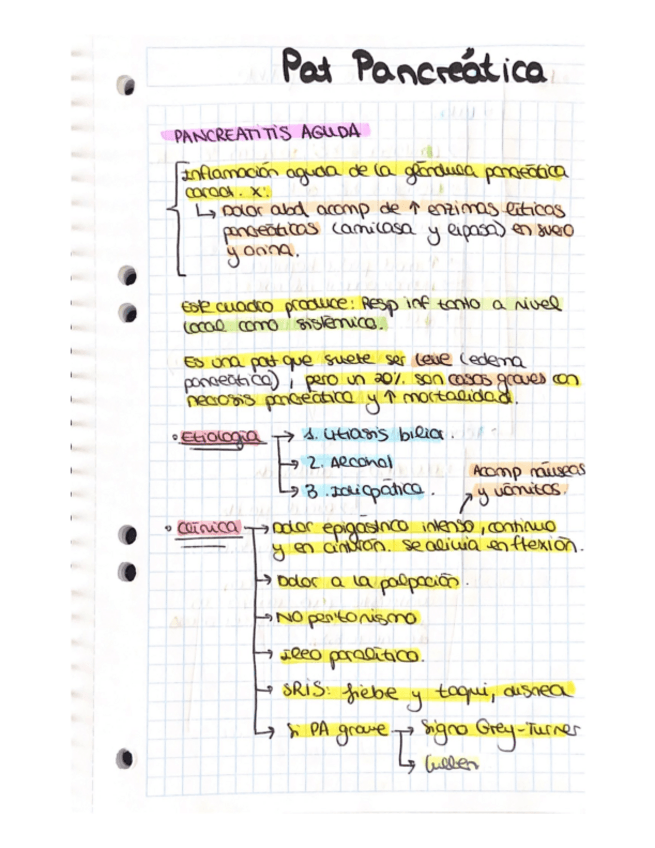 Pat Pancreática
PANCREATITIS AGUDA
Inflamación aguda de la glándula pancreática
caract. x:
↳ Dolor abd acomp de ↑ enzimas líticas
pancreáticas (amilasa y lipasa) en suero
y orina.
Este cuadro produce: Resp inf tanto a nivel
local como sistémico.
Es una pat que suele ser leve (edema
pancreática), pero un 20% son casos graves con
necrosis pancreática y ↑ mortalidad.
• Etiología → 1. Litiasis biliar.
→ 2. Alcohol
→ 3. Idiopática.
Acomp náuseas
y vómitos.
• Clínica → Dolor epigástrico intenso, continuo
y en cinturón. Se alivia en flexión.
→ Dolor a la palpación.
→ NO peritonismo
→ Íleo paralítico.
→ SRIS: fiebe y taqui, disnea
→ Si PA grave → Signo Grey-Turner
↳ Cullen